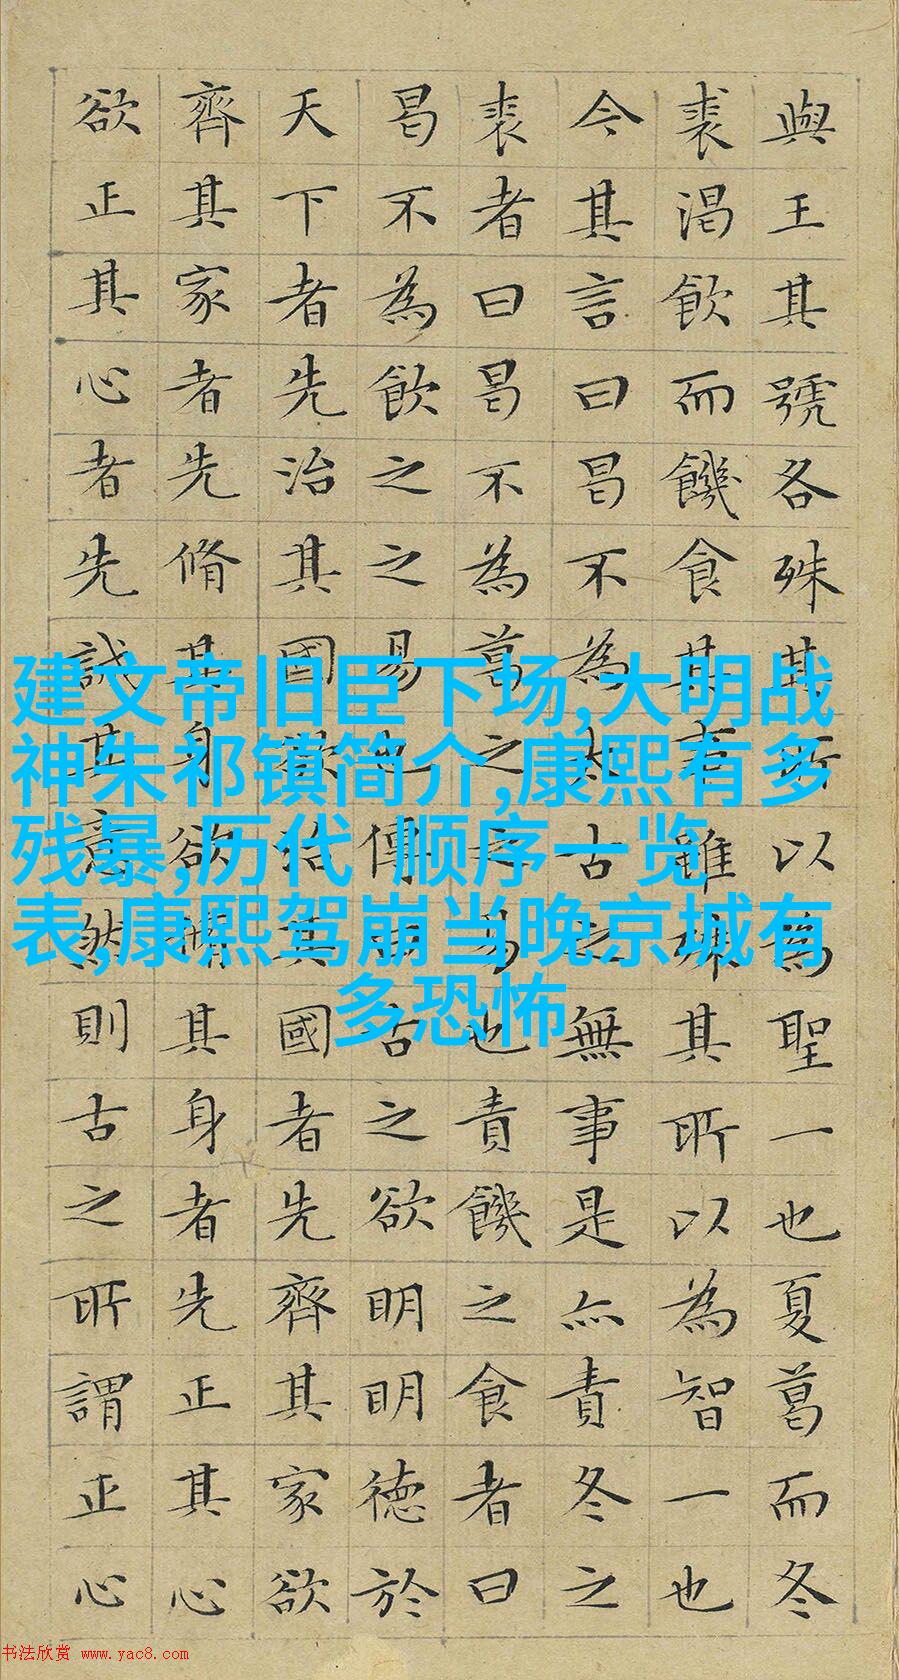 與王其號各殊其所以為聖一也夏葛而冬
裘渴飲而饑食其事雖殊其所以為智一也
今其言曰曷不為太古之無事是亦責冬之
裘者曰曷不為葛之之易也責饑之食者曰
曷不為飲之之易也傳曰古之欲明明德於
天下者先治其國欲治其國者先齊其家欲
齊其家者先脩其身欲脩其身者先正其心
欲正其心者先誠其意然則古之所謂正心
建文帝旧臣下场,大明战
神朱祁镇简介,康熙有多
残暴,历代 顺序一览
表,康熙驾崩当晚京城有
多恐怖
书法欣赏 www.yac8.com